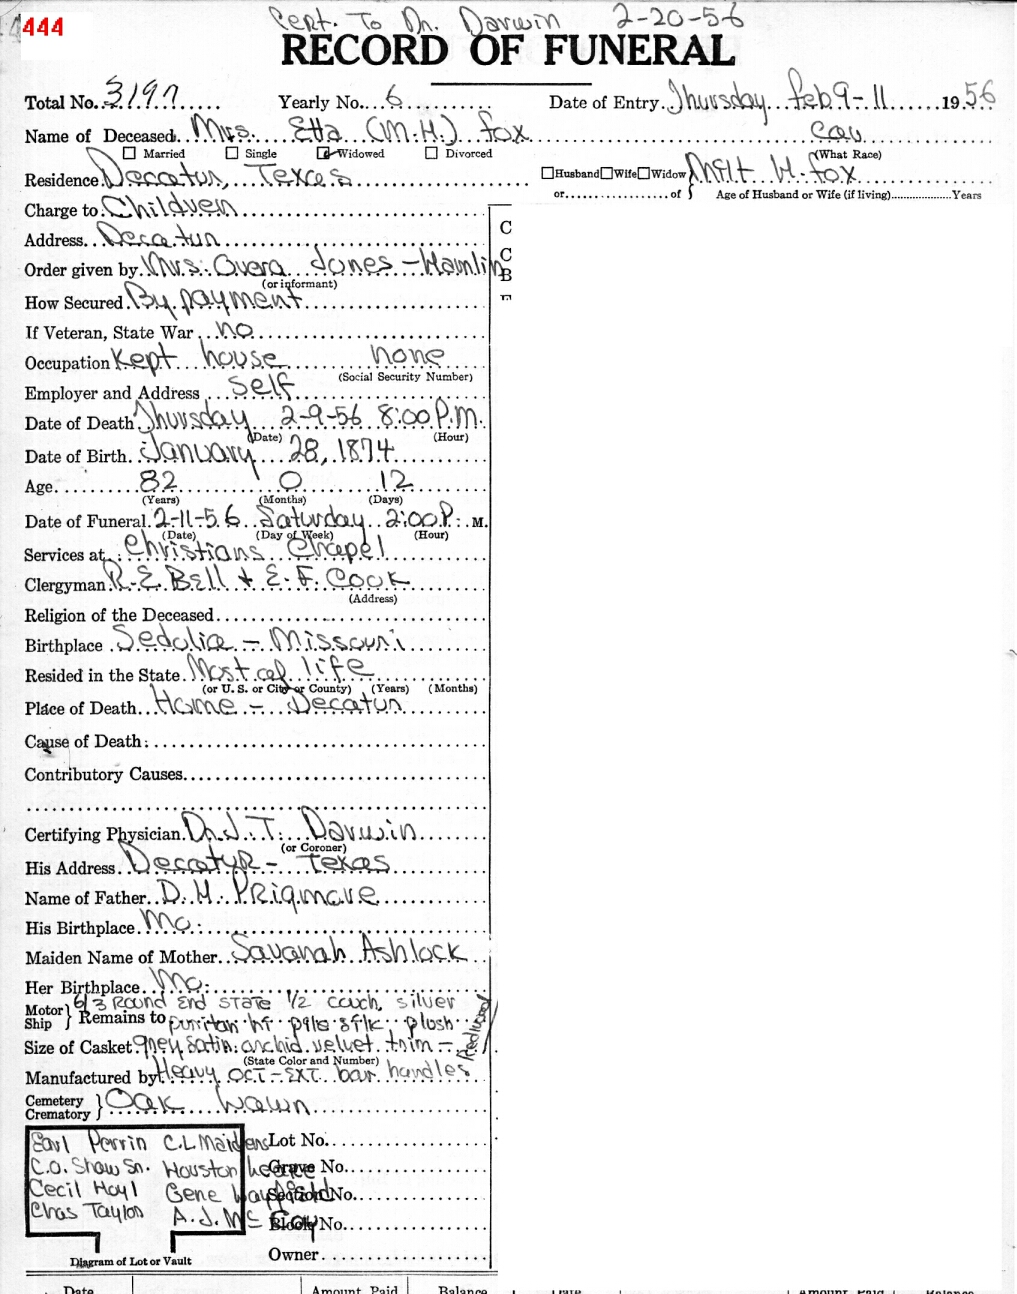 444
Cert. To Dr. Darwin 2-20-56
RECORD OF FUNERAL
Total No. 3197 Yearly No. 6 Date of Entry Thursday Feb 9-11 1956
Name of Deceased Mrs. Etta (M.H.) Fox Cau
Married Single Widowed Divorced (What Race)
Residence Decatur, Texas Husband Wife Widow Milt H. Fox
or of Age of Husband or Wife (if living) Years
Charge to Children
Address Decatur
Order given by Mrs. Overa Jones - Hamlin
(or informant)
How Secured By payment
If Veteran, State War no
Occupation Kept house none
(Social Security Number)
Employer and Address Self
Date of Death Thursday 2-9-56 8:00 P.M.
(Date) (Hour)
Date of Birth January 28, 1874
Age 82 0 12
(Years) (Months) (Days)
Date of Funeral 2-11-56 Saturday 2:00 P. M.
(Date) (Day of Week) (Hour)
Services at Christians Chapel
Clergyman R.E. Bell + E.F. Cook
(Address)
Religion of the Deceased
Birthplace Sedalia - Missouri
Resided in the State Most of life
(or U. S. or City or County) (Years) (Months)
Place of Death Home - Decatur
Cause of Death:
Contributory Causes
Certifying Physician Dr. J. T. Darwin
(or Coroner)
His Address Decatur - Texas
Name of Father D. H. Prigmore
His Birthplace Mo.
Maiden Name of Mother Savanah Ashlock
Her Birthplace Mo.
Motor Ship Remains to 6/3 Round End State 1/2 couch, silver
puritan hf pile silk plush
Size of Casket grey satin orchid velvet trim -
(State Color and Number)
Manufactured by Heavy Oct-Ext bar handles
Cemetery Crematory Oak Lawn
Earl Perrin C.L. Maidens Lot No.
C.O. Shaw Sr. Houston Grave No.
Cecil Hoyl Gene Section No.
Chas Taylor A.J. McCoy Block No.
Owner
Diagram of Lot or Vault
Date Amount Paid Balance Date Amount Paid Balance